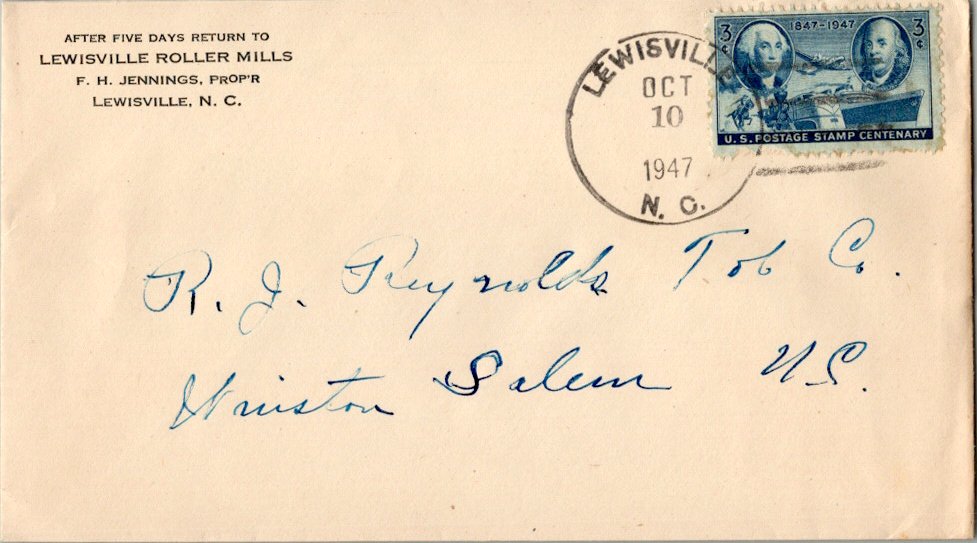 AFTER FIVE DAYS RETURN TO
LEWISVILLE ROLLER MILLS
F. H. JENNINGS, PROP'R
LEWISVILLE, N. C.
LEWISVILLE
OCT
10
1947
N. C.
3¢ 1847-1947 3¢
U.S. POSTAGE STAMP CENTENARY
R. J. Reynolds Tob Co.
Winston Salem N.C.